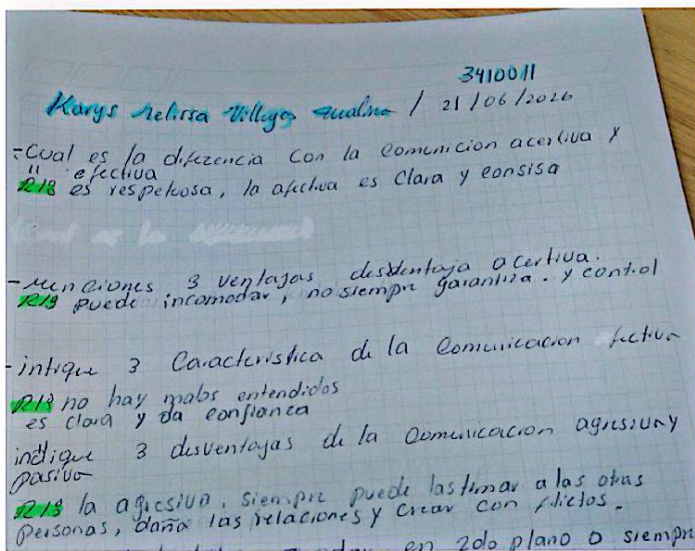 3410011
Karys Melissa Villegas / 21/06/2026
- Cual es la diferencia con la comunicion acertiva y
" efectiva
R/s es respetuosa, la afectiva es Clara y consisa
- menciones 3 ventajas desventaja acertiva.
R/s puede incomodar, no siempre garantiza. y control
- intique 3 Caracteristica de la Comunicacion fectiva
R/s no hay malos entendidos
es clara y da confianza
indique 3 desventajas de la Comunicacion agresiva y
pasiva
R/s la agresiva, siempre puede lastimar a las otras
personas, daña las relaciones y crear con flictos.
en 2do plano o siempre